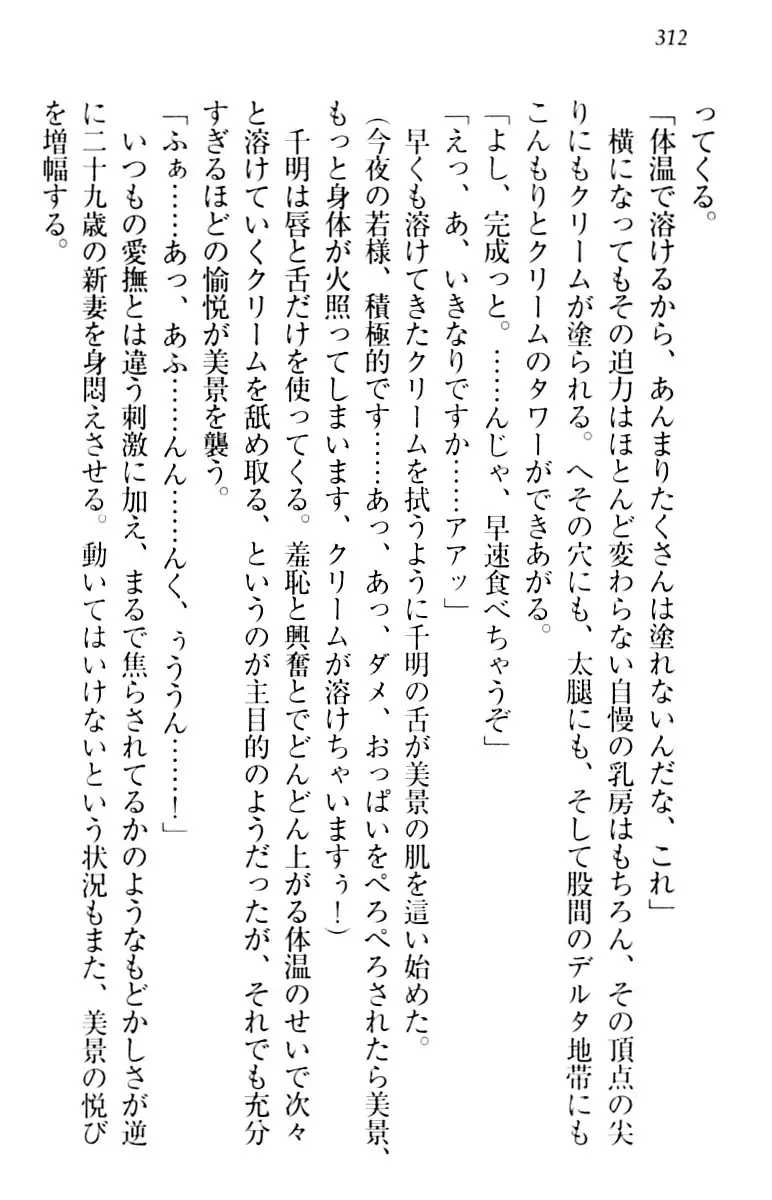 312
ってくる。
「体温で溶けるから、あんまりたくさんは塗れないんだな、これ」
横になってもその迫力はほとんど変わらない自慢の乳房はもちろん、その頂点の尖
りにもクリームが塗られる。へその穴にも、太腿にも、そして股間のデルタ地帯にも
こんもりとクリームのタワーができあがる。
「よし、完成っと。……んじゃ、早速食べちゃうぞ」
「えっ、あ、いきなりですか……アアッ」
早くも溶けてきたクリームを拭うように千明の舌が美景の肌を這い始めた。
(今夜の若様、積極的です……あっ、あっ、ダメ、おっぱいをぺろぺろされたら美景、
もっと身体が火照ってしまいます、クリームが溶けちゃいますぅ！)
千明は唇と舌だけを使ってくる。羞恥と興奮とでどんどん上がる体温のせいで次々
と溶けていくクリームを舐め取る、というのが主目的のようだったが、それでも充分
すぎるほどの愉悦が美景を襲う。
「ふぁ……あっ、あふ……んん……んく、ぅううん……！」
いつもの愛撫とは違う刺激に加え、まるで焦らされてるかのようなもどかしさが逆
に二十九歳の新妻を身悶えさせる。動いてはいけないという状況もまた、美景の悦び
を増幅する。